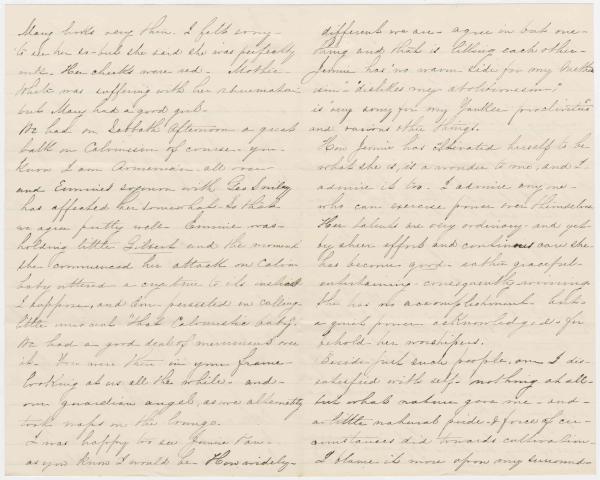 Mary looks very thin. I felt sorry
to see her so - but she said she was perfectly
well. Her cheeks were red. Mother
White was suffering with her rheumatism
but Mary had a good girl.
We had on Sabbath Afternoon a great
talk on Calvinism of course. you
know I am Armenian all over
and Emmie's sojourn with Geo Smiley
has affected her somewhat so that
we agree pretty well - Emmie was
holding little Gilbert and the moment
she commenced her attack on Calvin
baby uttered a cry true to its instinct
I suppose, and Em persisted in calling
little innocent "that Calvinistic baby".
We had a good deal of merriment over
it. You were there in your frame
looking at us all the while - and
our guardian angel, as we alternately
took naps on the lounge.
I was happy to see Jennie
as you know I would be. How widely
different we are - agree in but one
thing and that is liking each other -
Jennie has "no warm side for my Method
ism" "dislikes my abolitionism,"
is "very sorry for my Yankee proclivities"
and various other things.
How Jennie has educated herself to be
what she is, is a wonder to me, and I
admire it too. I admire any one
who can exercise power over themselves
Her talents are very ordinary and yet
by sheer effort and continuous care she
has become good - rather graceful -
entertaining - consequently winning
She has no accomplishment - but
a great power acknowledged - for
behold her worshipers.
Beside just such people, am I dis-
satisfied with self - nothing at all -
but what nature gave me - and
a little natural pride & force of cir-
cumstances did towards cultivation.
I blame it more upon my surround-